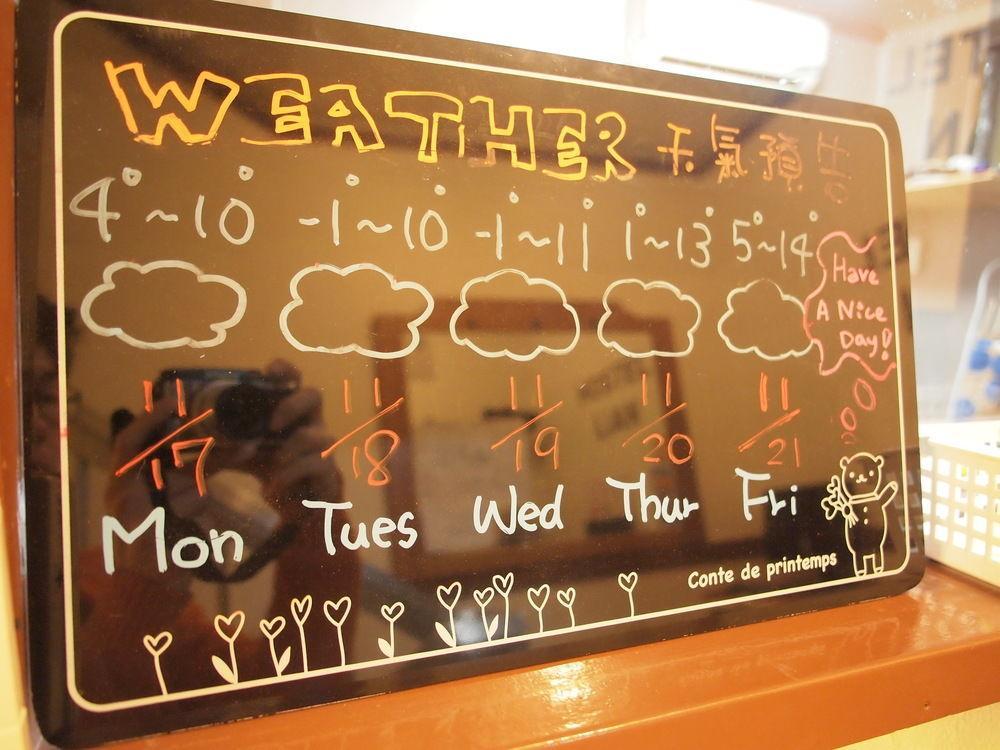 WEATHER 天氣預告
4°~10° -1°~10° -1°~11° 1°~13° 5°~14°
Have
A Nice
Day!
11/17 11/18 11/19 11/20 11/21
Mon Tues Wed Thur Fri
Conte de printemps